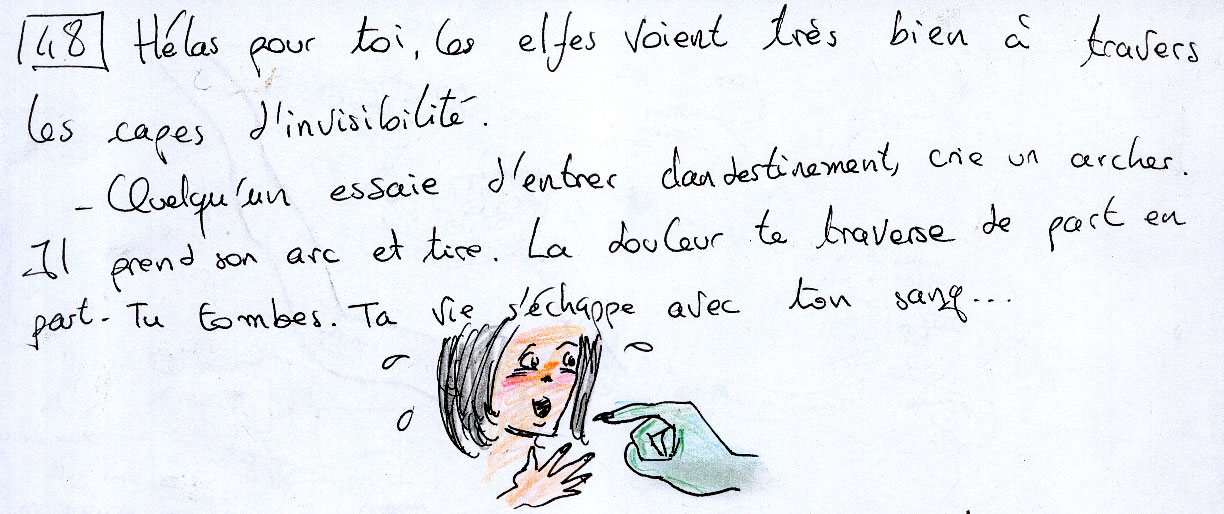 48 Hélas pour toi, les elfes voient très bien à travers
les capes d'invisibilité.
- Quelqu'un essaie d'entrer clandestinement, crie un archer.
Il prend son arc et tire. La douleur te traverse de part en
part. Tu tombes. Ta vie s'échappe avec ton sang...